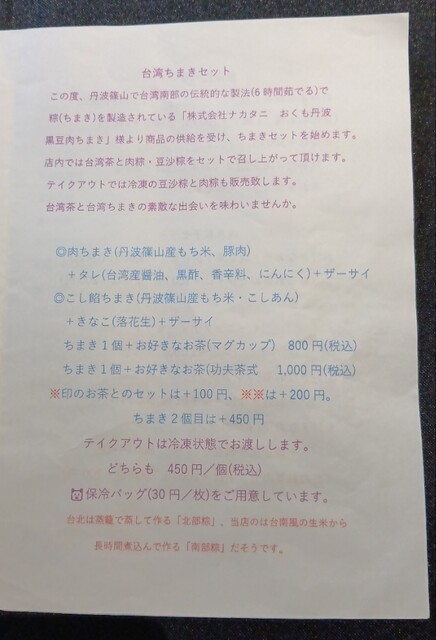 台湾ちまきセット
この度、丹波篠山で台湾南部の伝統的な製法(6時間茹でる)で
粽(ちまき)を製造されている「株式会社ナカタニ　おくも丹波
黒豆肉ちまき」様より商品の供給を受け、ちまきセットを始めます。
店内では台湾茶と肉粽・豆沙粽をセットで召し上がって頂けます。
テイクアウトでは冷凍の豆沙粽と肉粽も販売致します。
台湾茶と台湾ちまきの素敵な出会いを味わいませんか。
◎肉ちまき(丹波篠山産もち米、豚肉)
＋タレ(台湾産醤油、黒酢、香辛料、にんにく)＋ザーサイ
◎こし餡ちまき(丹波篠山産もち米・こしあん)
＋きなこ(落花生)＋ザーサイ
ちまき１個＋お好きなお茶(マグカップ)　800円(税込)
ちまき１個＋お好きなお茶(功夫茶式　1,000円(税込)
※印のお茶とのセットは＋100円、※※は＋200円。
ちまき２個目は＋450円
テイクアウトは冷凍状態でお渡しします。
どちらも　450円／個(税込)
保冷バッグ(30円／枚)をご用意しています。
台北は蒸籠で蒸して作る「北部粽」、当店のは台南風の生米から
長時間煮込んで作る「南部粽」だそうです。